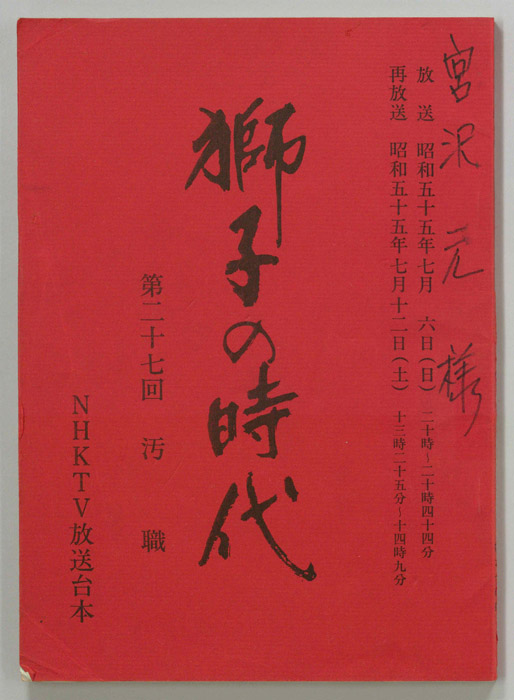 宮沢元様
放送 昭和五十五年七月 六日(日) 二十時~二十時四十四分
再放送 昭和五十五年七月十二日(土) 十三時二十五分~十四時九分
獅子の時代
第二十七回 汚職
NHKTV放送台本